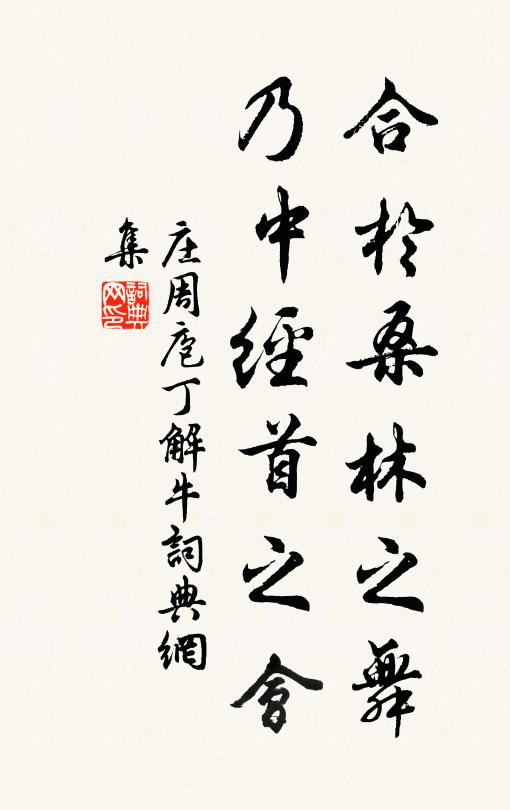 合於桑林之舞
乃中經首之會
庄周庖丁解牛詞典網
集
詞典
网印